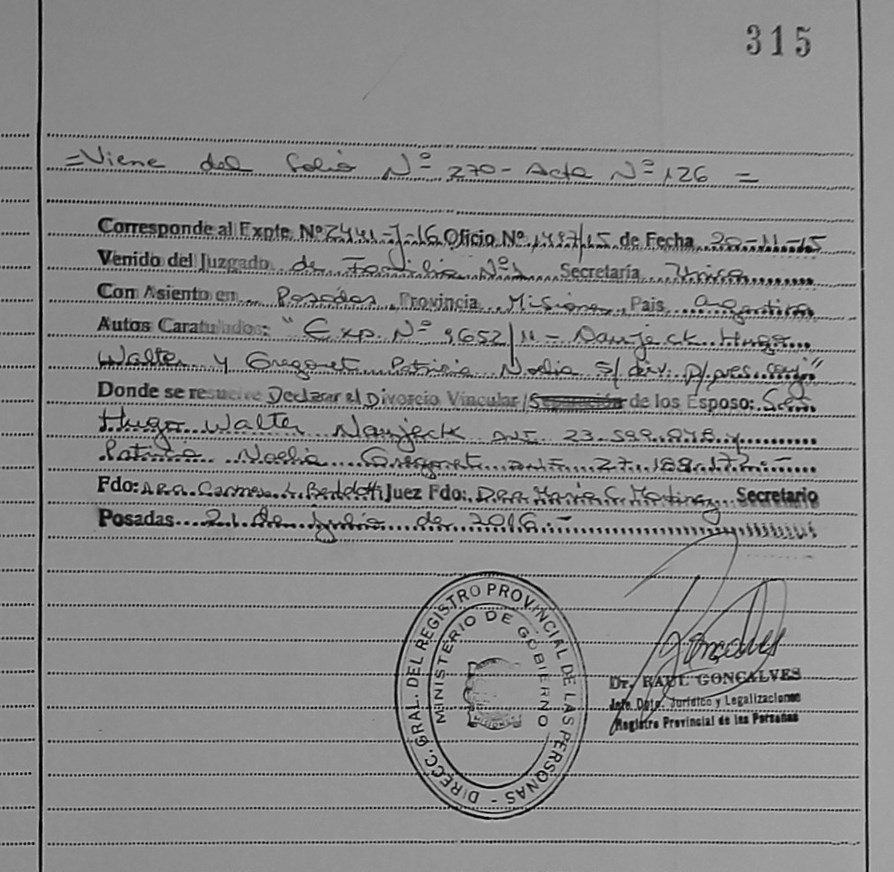 315
=Viene del Folio Nº 270 - Acta Nº 126 =
Corresponde al Expte. Nº 2441-J-16 Oficio Nº 1497/15 de Fecha 20-11-15
Venido del Juzgado de Familia Nº 1 Secretaría Unica
Con Asiento en Posadas, Provincia Misiones, País Argentina
Autos Caratulados: "Exp. Nº 9652/11 - Naujeck Hugo
Walter y Gregoret Patricia Noelia s/ div. p/ pres. conj"
Donde se resuelve Declarar el Divorcio Vincular/Separación de los Esposo: Sres
Hugo Walter Naujeck DNI 23.599.848 y
Patricia Noelia Gregoret DNI 27.188.172.-
Fdo: Dra. Carmen L. Juez Fdo: Dra. María C. Martinez Secretario
Posadas 21 de julio de 2016.-
DIRECC. GRAL. DEL REGISTRO PROVINCIAL DE LAS PERSONAS -
MINISTERIO DE GOBIERNO
Dr. RAUL GONCALVES
Jefe Dpto. Jurídico y Legalizaciones
Registro Provincial de las Personas